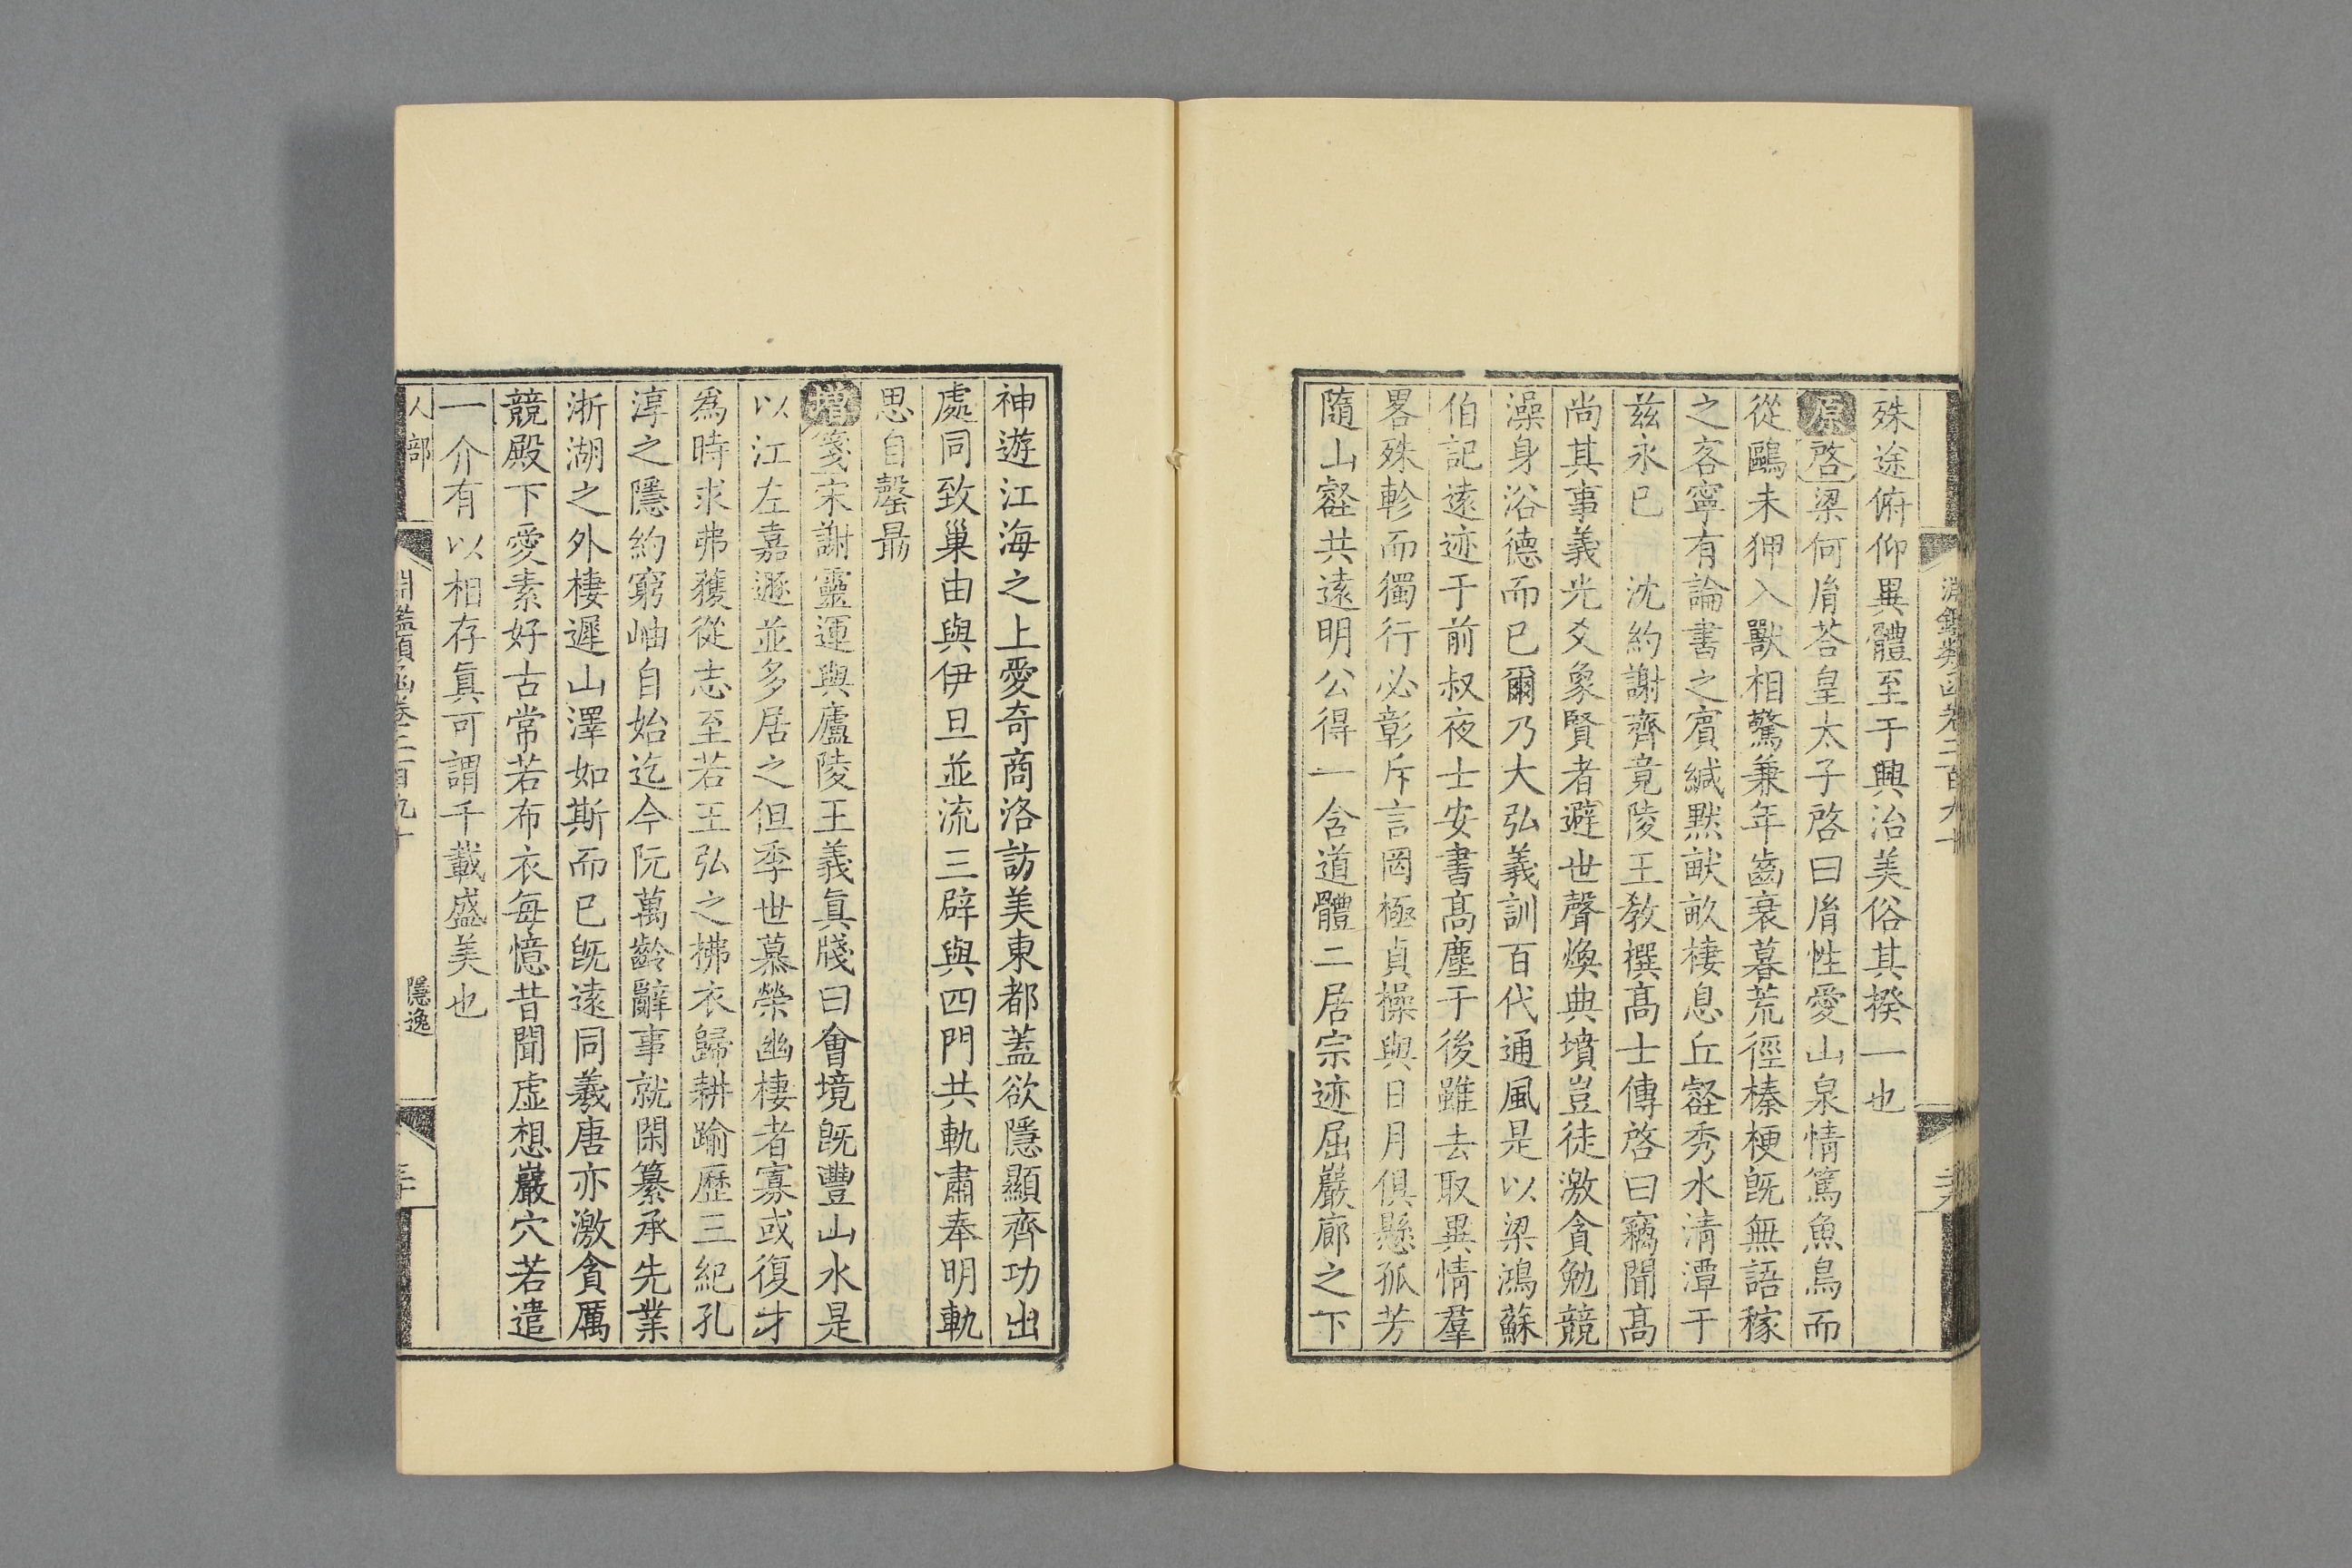 淵鑑類函卷二百九十
殊途俯仰異體至于興治美俗其揆一也
原啓梁何胤荅皇太子啓曰胤性愛山泉情篤魚鳥而
從鷗未狎入獸相驚兼年齒衰暮荒徑榛梗旣無語稼
之客寧有論書之賓緘默畎畝棲息丘壑秀水清潭于
茲永已 沈約謝齊竟陵王敎撰高士傳啓曰竊聞高
尚其事義光爻象賢者避世聲煥典墳豈徒激貪勉競
澡身浴德而已爾乃大弘義訓百代通風是以梁鴻蘇
伯記遠迹于前叔夜士安書高塵于後雖去取異情羣
畧殊軫而獨行必彰斥言罔極貞操與日月俱懸孤芳
隨山壑共遠明公得一含道體二居宗迹屈巖廊之下
神遊江海之上愛奇商洛訪美東都蓋欲隱顯齊功出
處同致巢由與伊旦並流三辟與四門共軌肅奉明軌
思自罄勗
增箋宋謝靈運與廬陵王義眞牋曰會境旣豐山水是
以江左嘉遯並多居之但季世慕榮幽棲者寡或復才
爲時求弗獲從志至若王弘之拂衣歸耕踰歷三紀孔
淳之隱約窮岫自始迄今阮萬齡辭事就閑纂承先業
浙湖之外棲遲山澤如斯而已旣遠同羲唐亦激貪厲
競殿下愛素好古常若布衣每憶昔聞虛想巖穴若遣
一介有以相存眞可謂千載盛美也
人部
淵鑑類函卷二百九十
隱逸